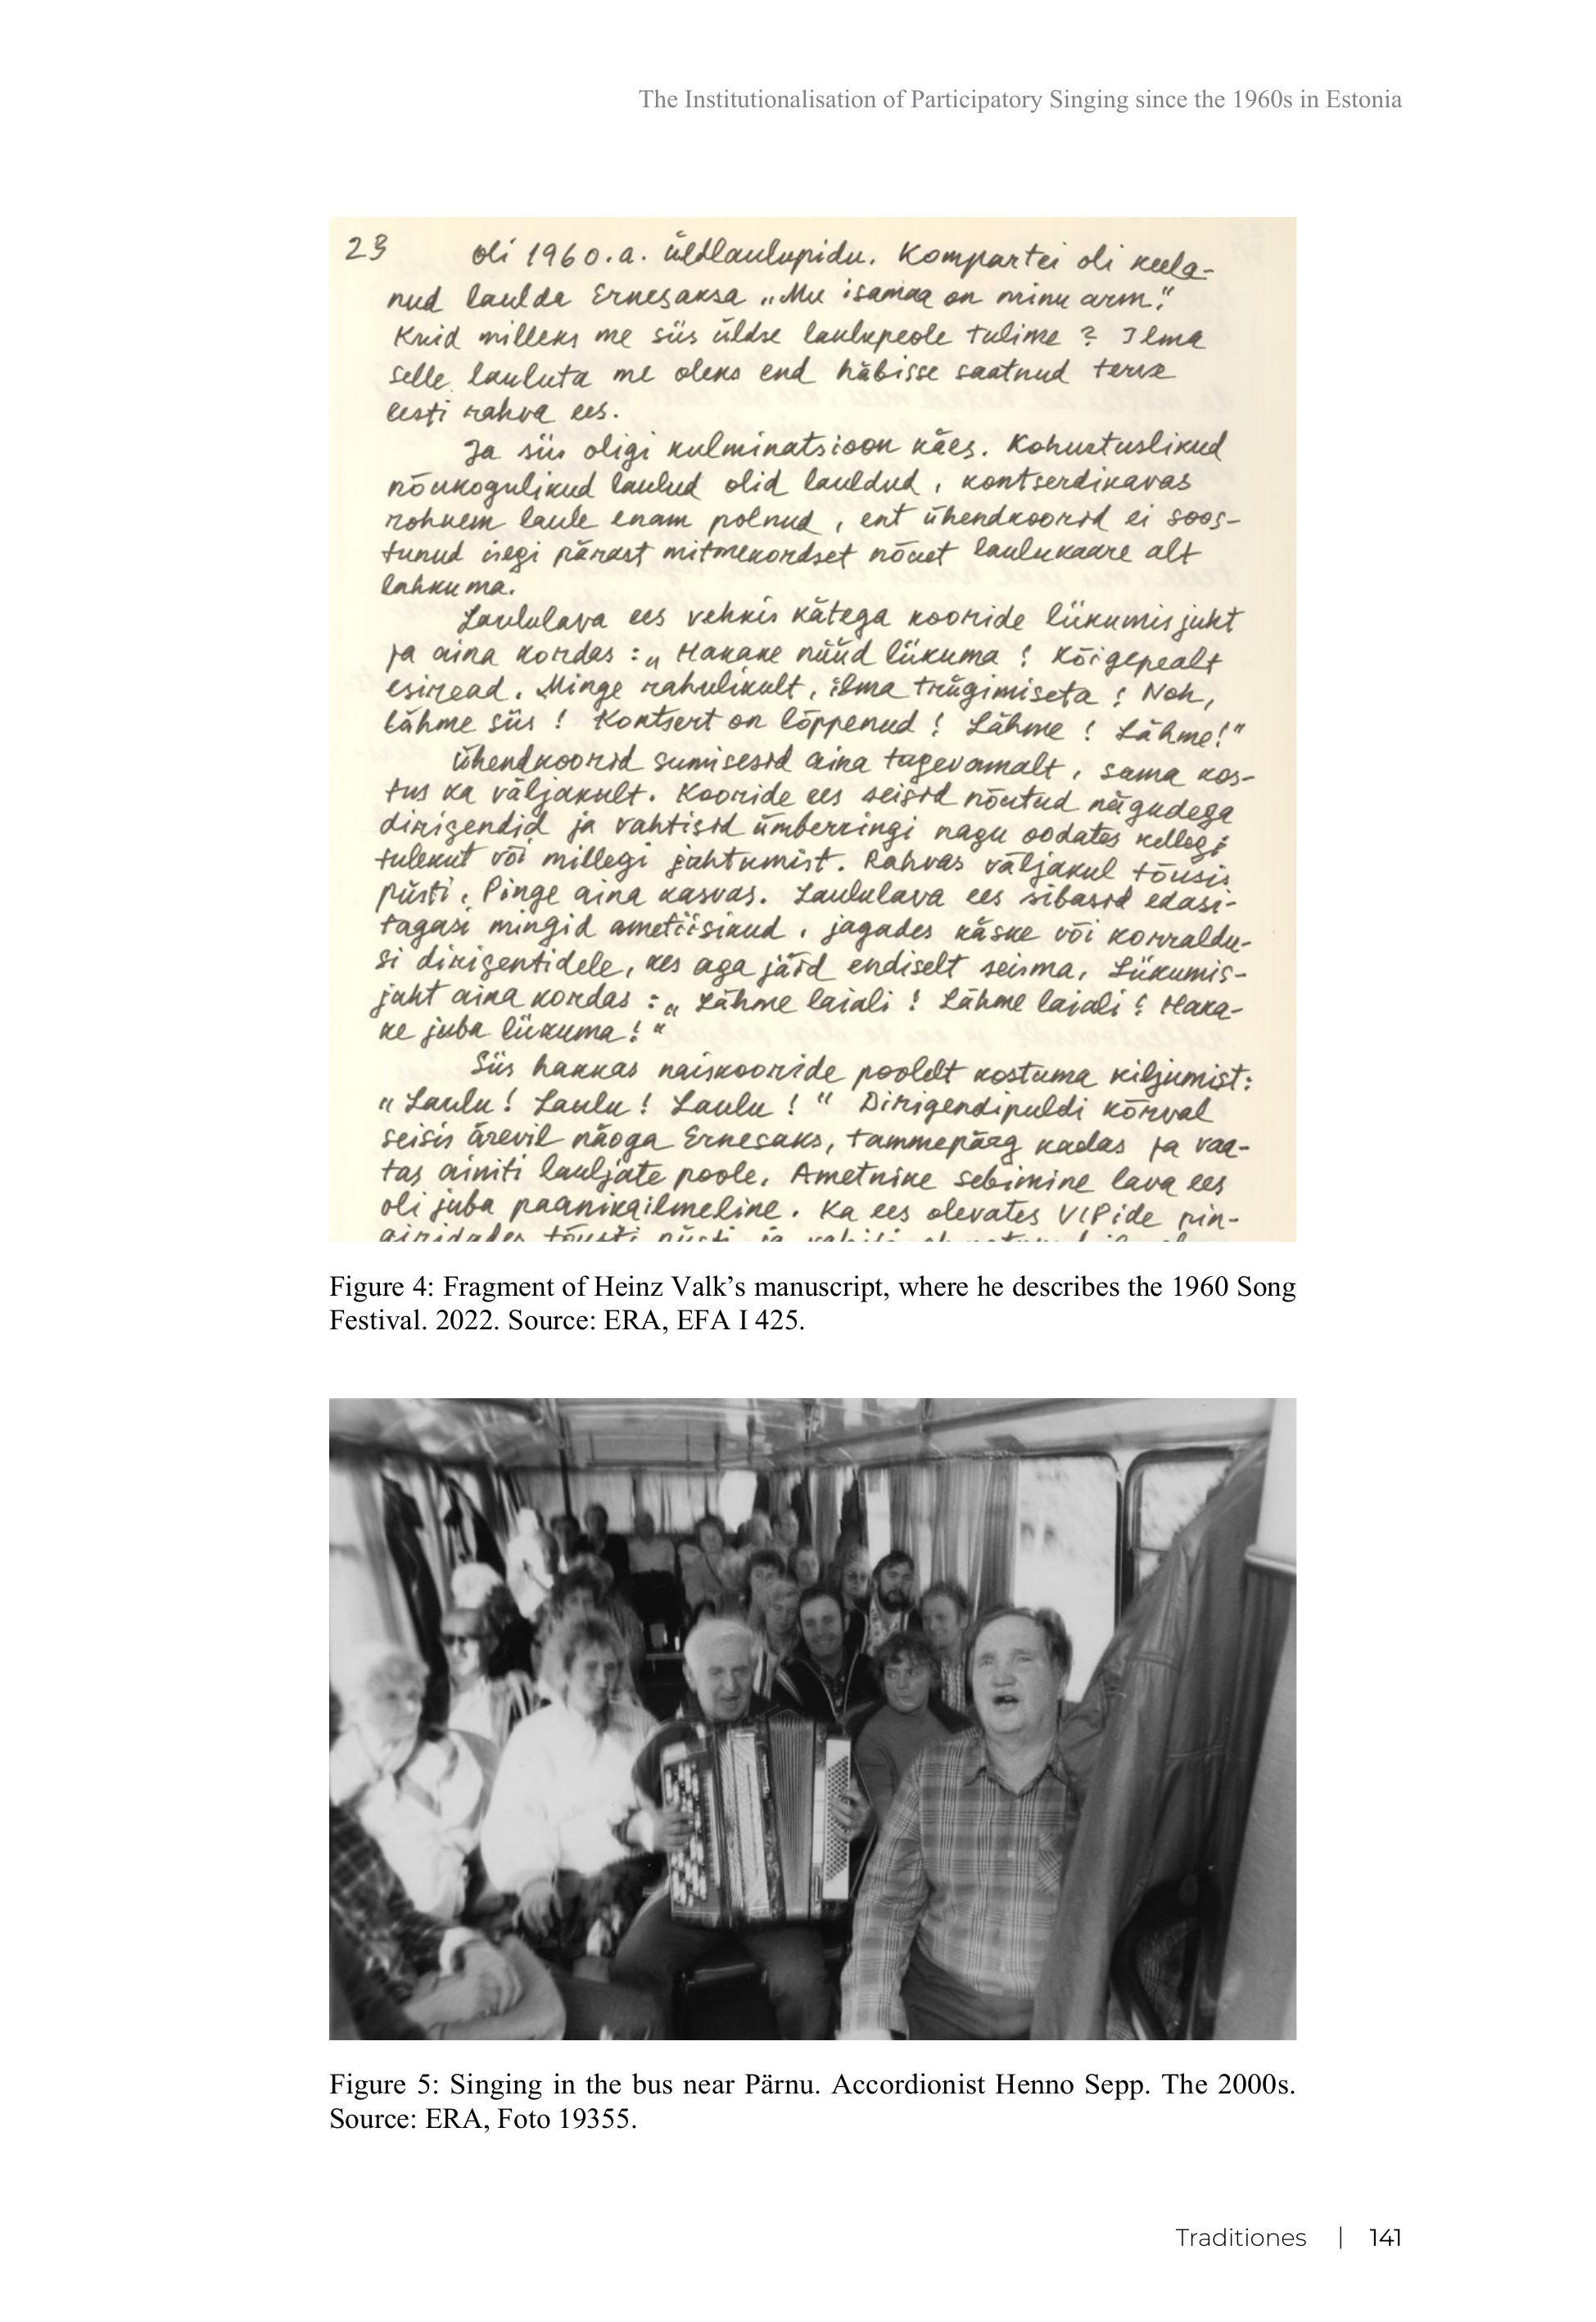 The Institutionalisation of Participatory Singing since the 1960s in Estonia
23 oli 1960.a. üldlaulupidu. Kompartei oli keela-
nud laulda Ernesaksa „Mu isamaa on minu arm."
Kuid milleks me siis üldse laulupeole tulime? Ilma
selle lauluta me oleks end häbisse saatnud terve
eesti rahva ees.
Ja siis oligi kulminatsioon käes. Kohustuslikud
nõukogulikud laulud olid lauldud, kontserdikavas
rohkem laule enam polnud, ent ühendkoorid ei soos-
tunud isegi pärast mitmekordset nõuet laulukaare alt
lahkuma.
Laululava ees vehkis kätega kooride liikumisjuht
ja aina kordas: „Hakake nüüd liikuma! Kõigepealt
esiread. Minge rahulikult, ilma trügimiseta! Noh,
lähme siis! Kontsert on lõppenud! Lähme! Lähme!"
Ühendkoorid sumisesid aina tugevamalt, sama kos-
tus ka väljakult. Kooride ees seisid nõutud nägudega
dirigendid ja vahtisid ümberringi nagu oodates kellegi
tulekut või millegi juhtumist. Rahvas väljakul tõusis
püsti. Pinge aina kasvas. Laululava ees sibasid edasi-
tagasi mingid ametiisikud, jagades käske või korraldu-
si dirigentidele, kes aga jäid endiselt seisma. Liikumis-
juht aina kordas: „Lähme laiali! Lähme laiali! Haka-
ke juba liikuma!"
Siis hakkas naiskooride poolelt kostuma kiljumist:
„Laulu! Laulu! Laulu!" Dirigendipuldi kõrval
seisis ärevil näoga Ernesaks, tammepärg kaelas ja vaa-
tas ainiti lauljate poole. Ametnike sebimine lava ees
oli juba paanikailmeline. Ka ees olevates VIPide pin-
giridades tõusti püsti ja
Figure 4: Fragment of Heinz Valk's manuscript, where he describes the 1960 Song
Festival. 2022. Source: ERA, EFA I 425.
Figure 5: Singing in the bus near Pärnu. Accordionist Henno Sepp. The 2000s.
Source: ERA, Foto 19355.
Traditiones | 141